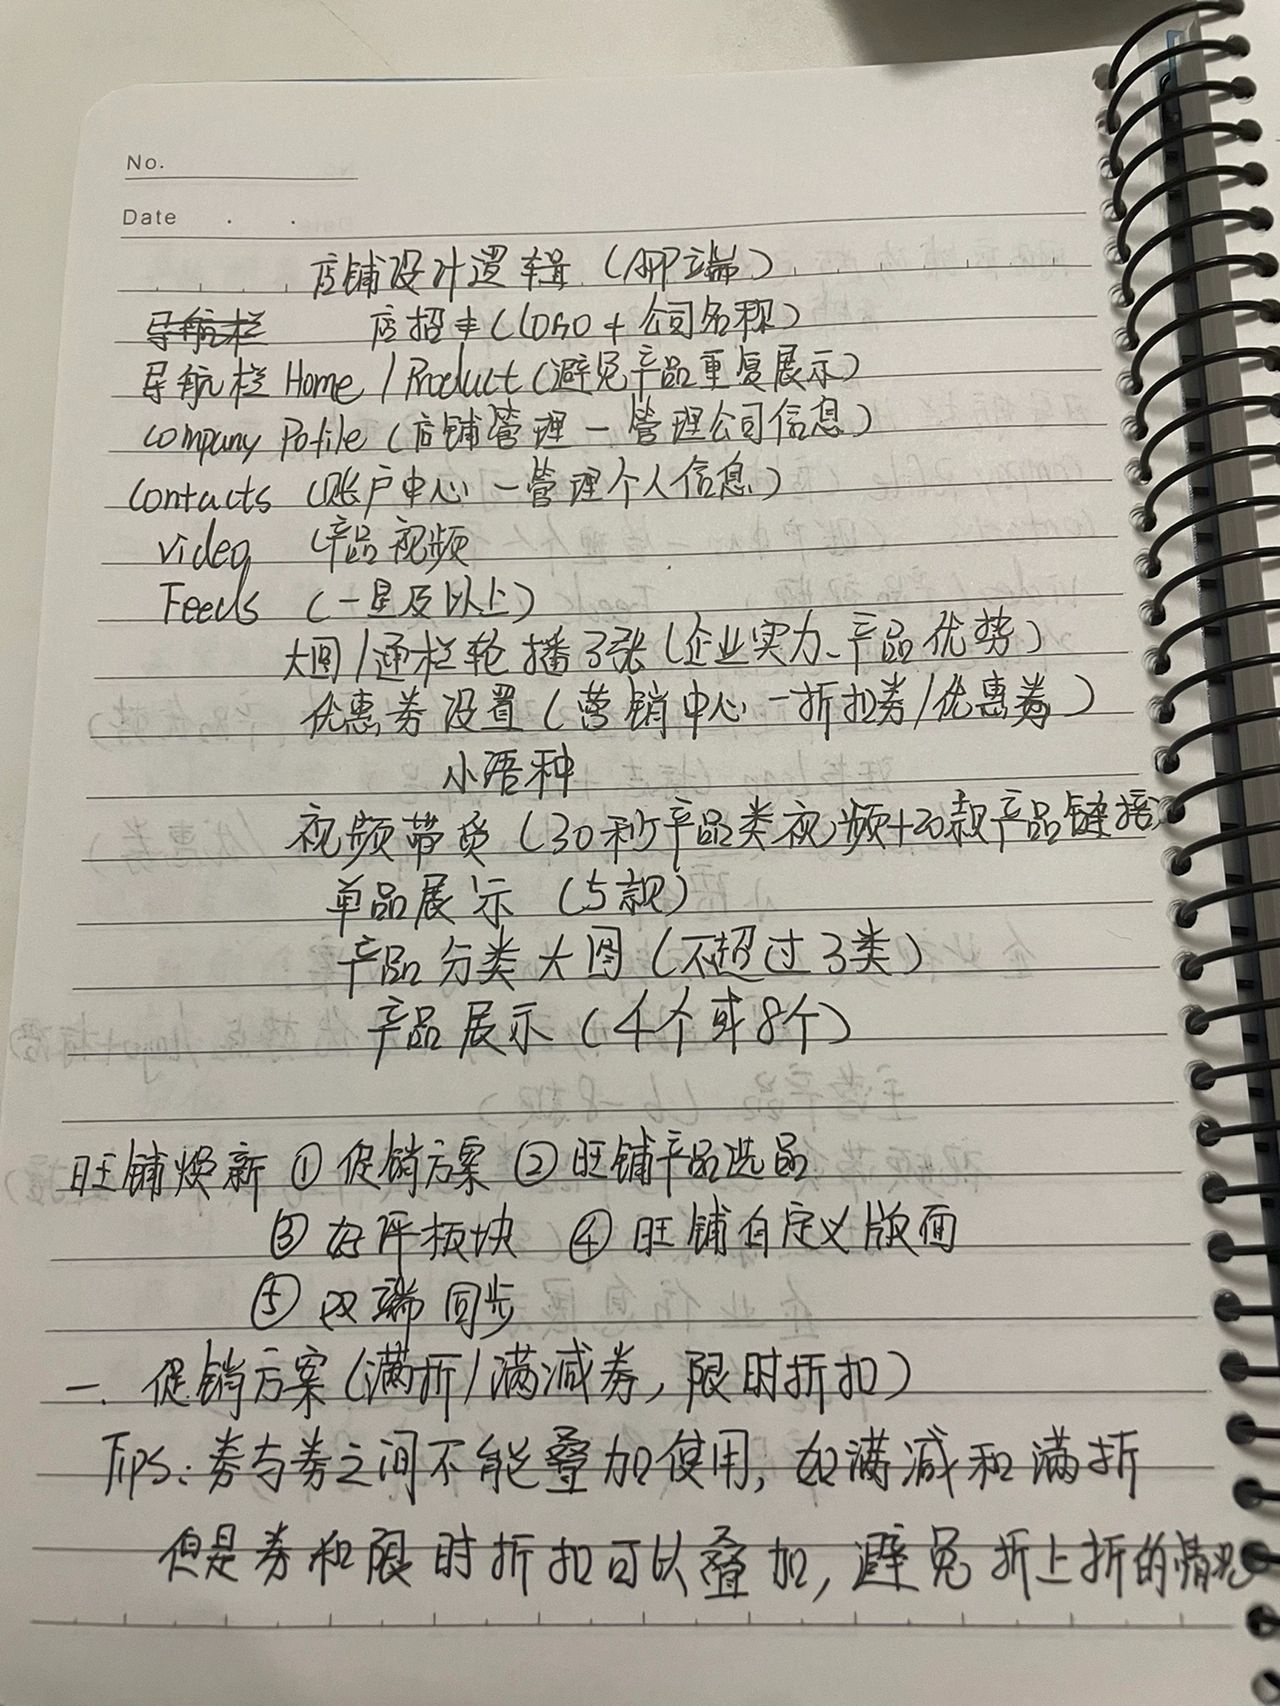 No.
Date . .
店铺设计逻辑 (APP端)
导航栏 店招丰(LOGO + 公司名称)
导航栏 Home / Product (避免产品重复展示)
Company Pofile (店铺管理 — 管理公司信息)
Contacts (账户中心 — 管理个人信息)
Video (产品视频
Feeds (一星及以上)
大图/通栏轮播3张(企业实力、产品优势)
优惠券设置 (营销中心 — 折扣券/优惠券)
小语种
视频带货 (30秒产品类视频+20款产品链接)
单品展示 (5款)
产品分类大图 (不超过3类)
产品展示 (4个或8个)
旺铺焕新 ① 促销方案 ② 旺铺产品选品
③ 好评板块 ④ 旺铺自定义版面
⑤ 双端同步
一. 促销方案 (满折/满减券, 限时折扣)
Tips: 券与券之间不能叠加使用, 如满减和满折
但是券和限时折扣可以叠加, 避免折上折的情况